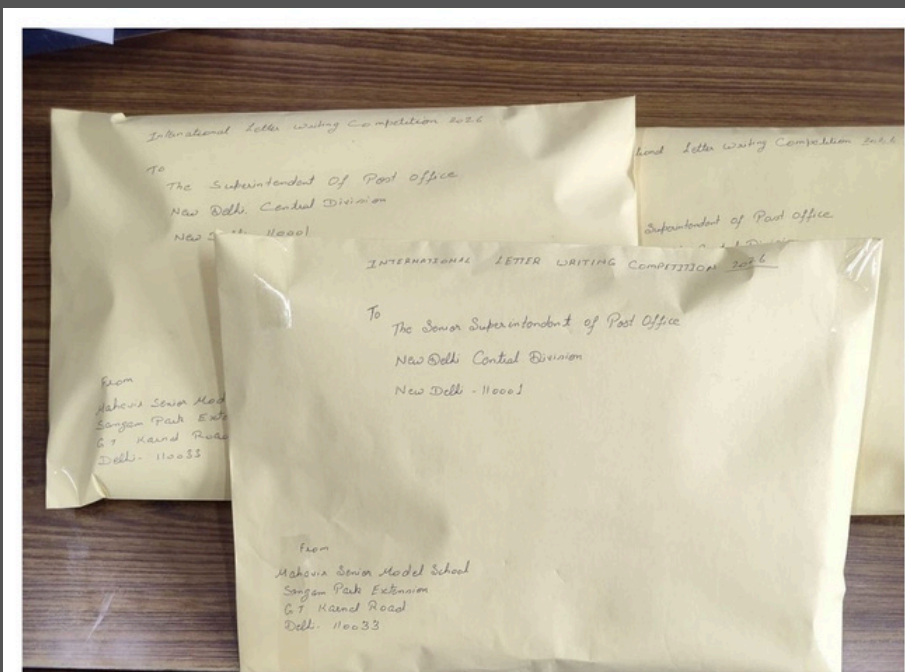 International Letter Writing Competition 2026
To
The Superintendent Of Post Office
New Delhi Central Division
New
110001
From
Mahavir Senior Mod
Sangam Park Exte
GT Karnal Road
Delhi- 110033
Letter Writing Competition 2026
Superintendent of Post Office
INTERNATIONAL LETTER WRITING COMPETITION 2026
To
The Senior Superintendent of Post Office
New Delhi Central Division
New Delhi - 110001
From
Mahavir Senior Model School
Sangam Park Extension
GT Karnal Road
Delhi- 110033